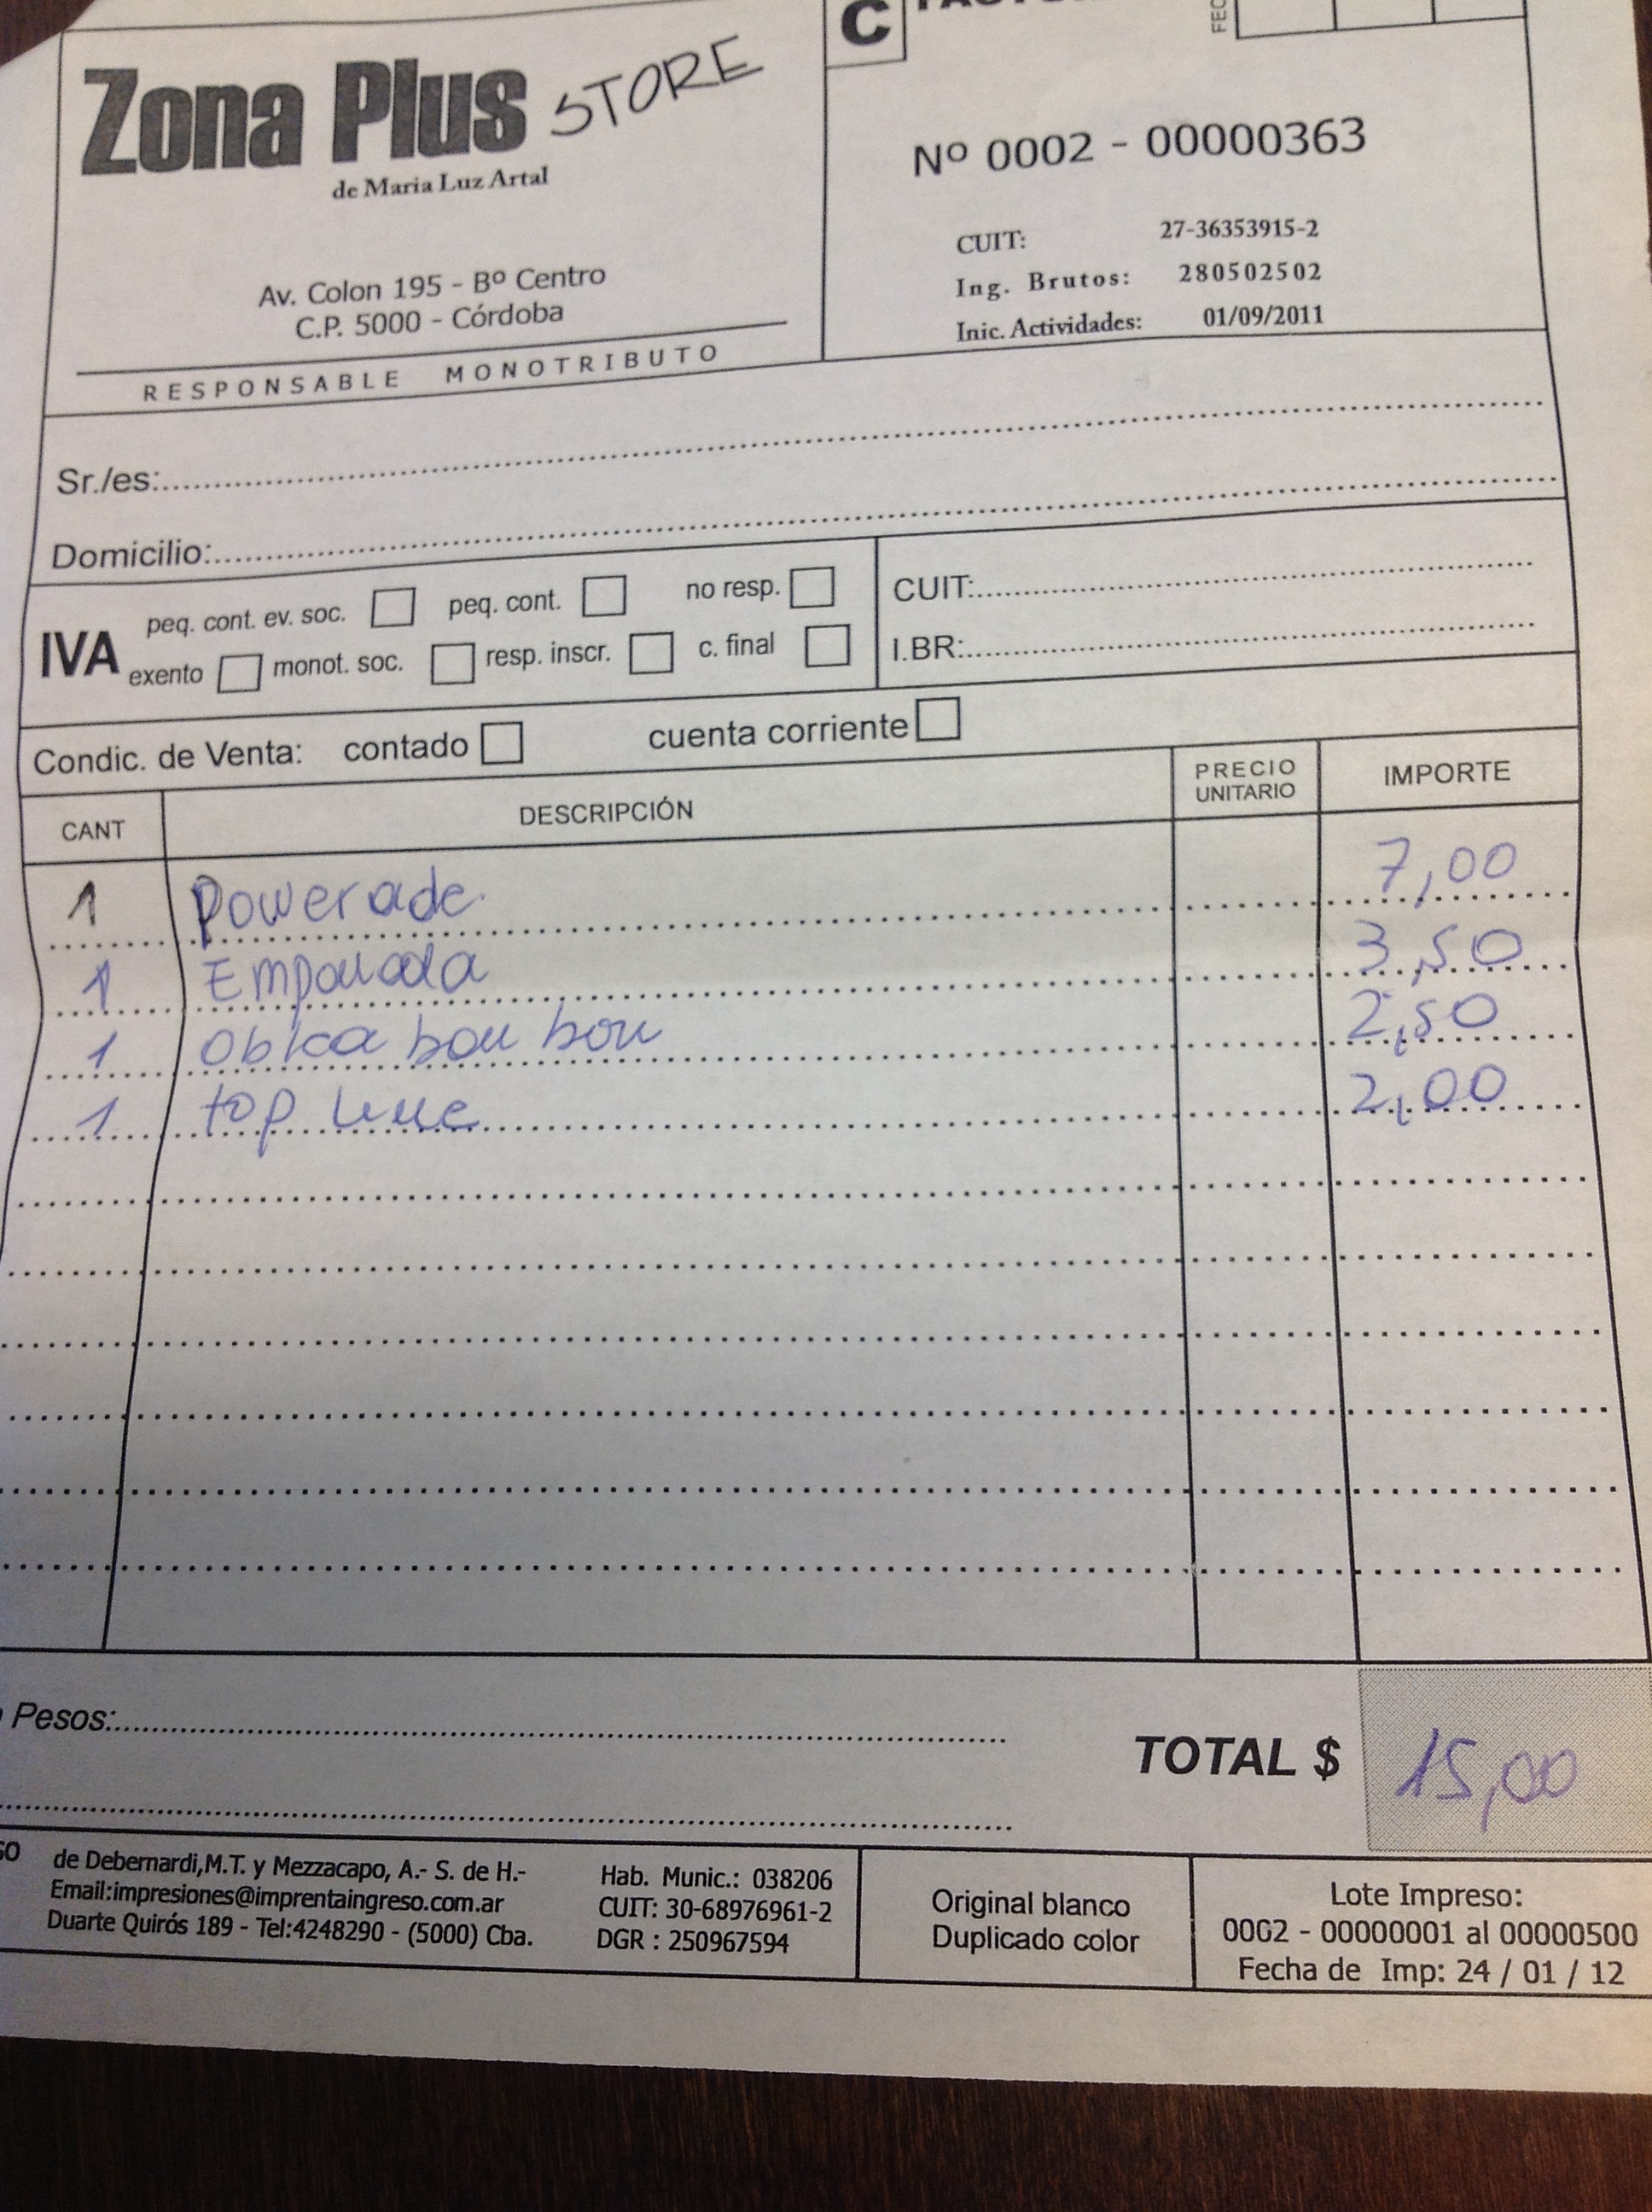 C
FEC
Zona Plus STORE
de Maria Luz Artal
Av. Colon 195 - Bº Centro
C.P. 5000 - Córdoba
RESPONSABLE MONOTRIBUTO
Nº 0002 - 00000363
CUIT: 27-36353915-2
Ing. Brutos: 280502502
Inic. Actividades: 01/09/2011
Sr./es:
Domicilio:
IVA peq. cont. ev. soc. peq. cont. no resp.
exento monot. soc. resp. inscr. c. final
CUIT:
I.BR:
Condic. de Venta: contado cuenta corriente
CANT DESCRIPCIÓN PRECIO UNITARIO IMPORTE
1 Powerade 7,00
1 Empanada 3,50
1 bon bon 2,50
1 top line 2,00
Pesos:
TOTAL $ 15,00
de Debernardi,M.T. y Mezzacapo, A.- S. de H.-
Email:impresiones@imprentaingreso.com.ar
Duarte Quirós 189 - Tel:4248290 - (5000) Cba.
Hab. Munic.: 038206
CUIT: 30-68976961-2
DGR : 250967594
Original blanco
Duplicado color
Lote Impreso:
0002 - 00000001 al 00000500
Fecha de Imp: 24 / 01 / 12